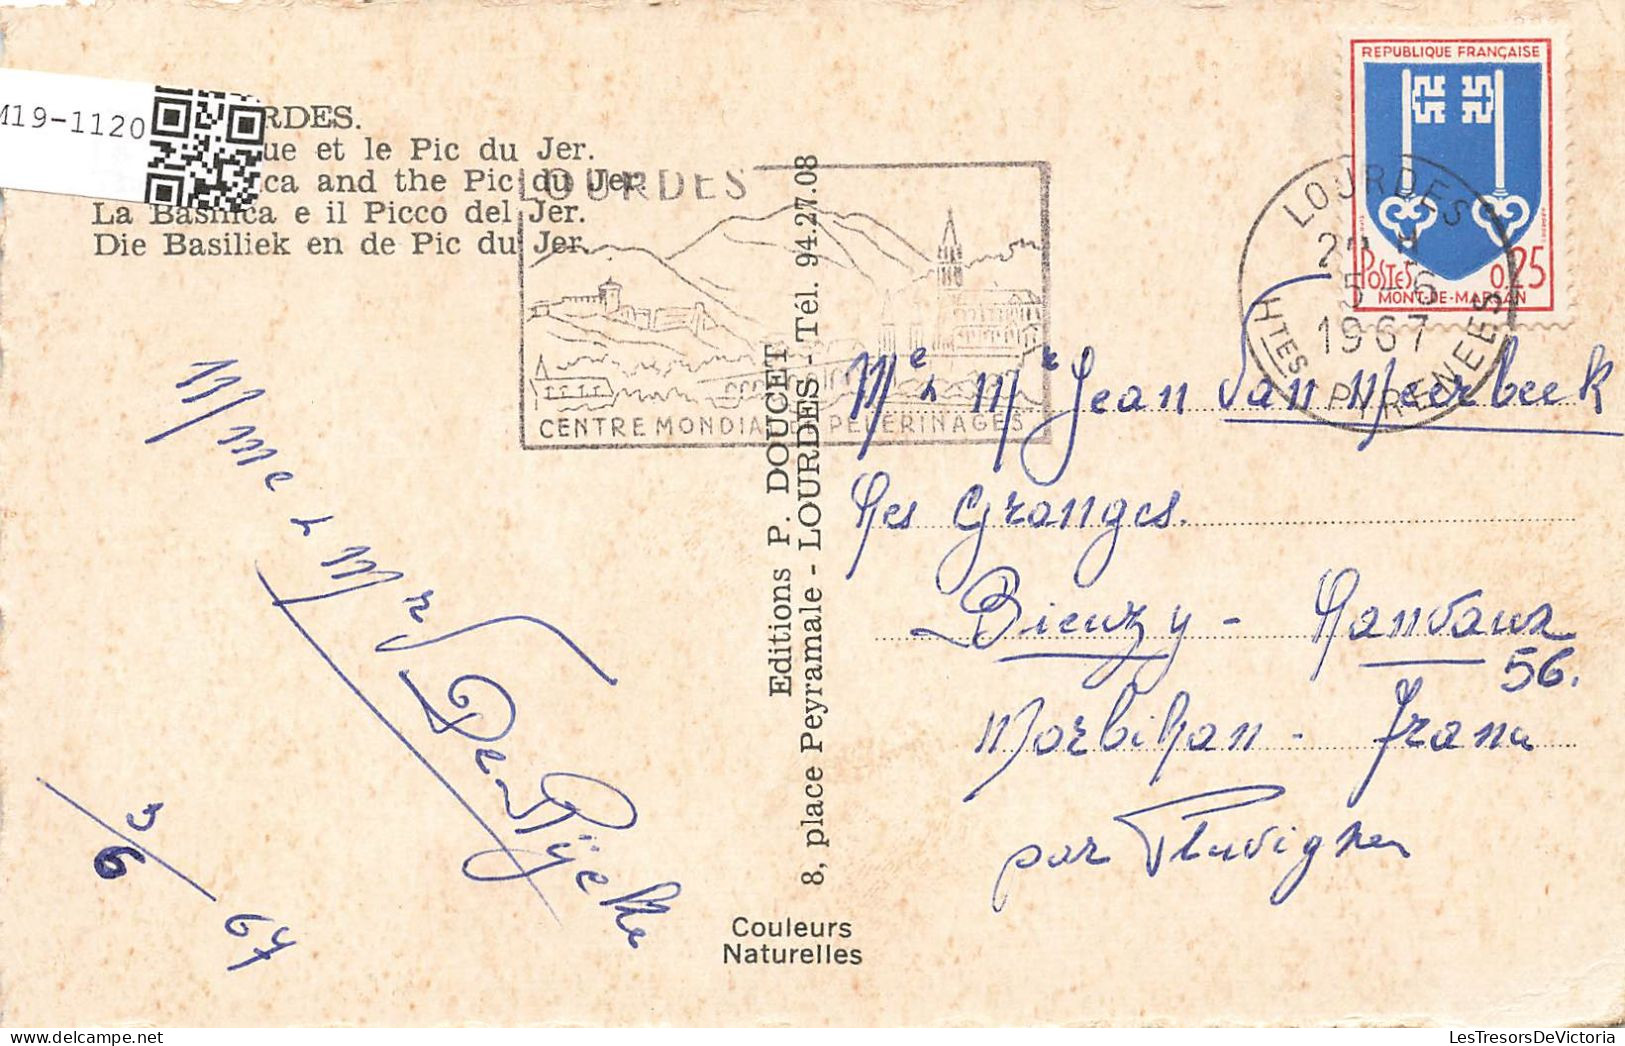 M19-1120
RDES.
ue et le Pic du Jer.
ca and the Pic du Jer.
La Basilica e il Picco del Jer.
Die Basiliek en de Pic du Jer.
LOURDES
CENTRE MONDIAL DE PELERINAGES
REPUBLIQUE FRANÇAISE
POSTES 0,25
MONT-DE-MARSAN
LOURDES
5-6
1967
HTES PYRENEES
Editions P. DOUCET
8, place Peyramale - LOURDES - Tél. 94.27.08
Mme & Mr De Rijcke
3/6 67
Me & Mr Jean Van Meerbeek
Les Granges.
Bieuzy - Lanvaux
56.
Morbihan - France
par Pluvigner
Couleurs
Naturelles
LesTresorsDeVictoria